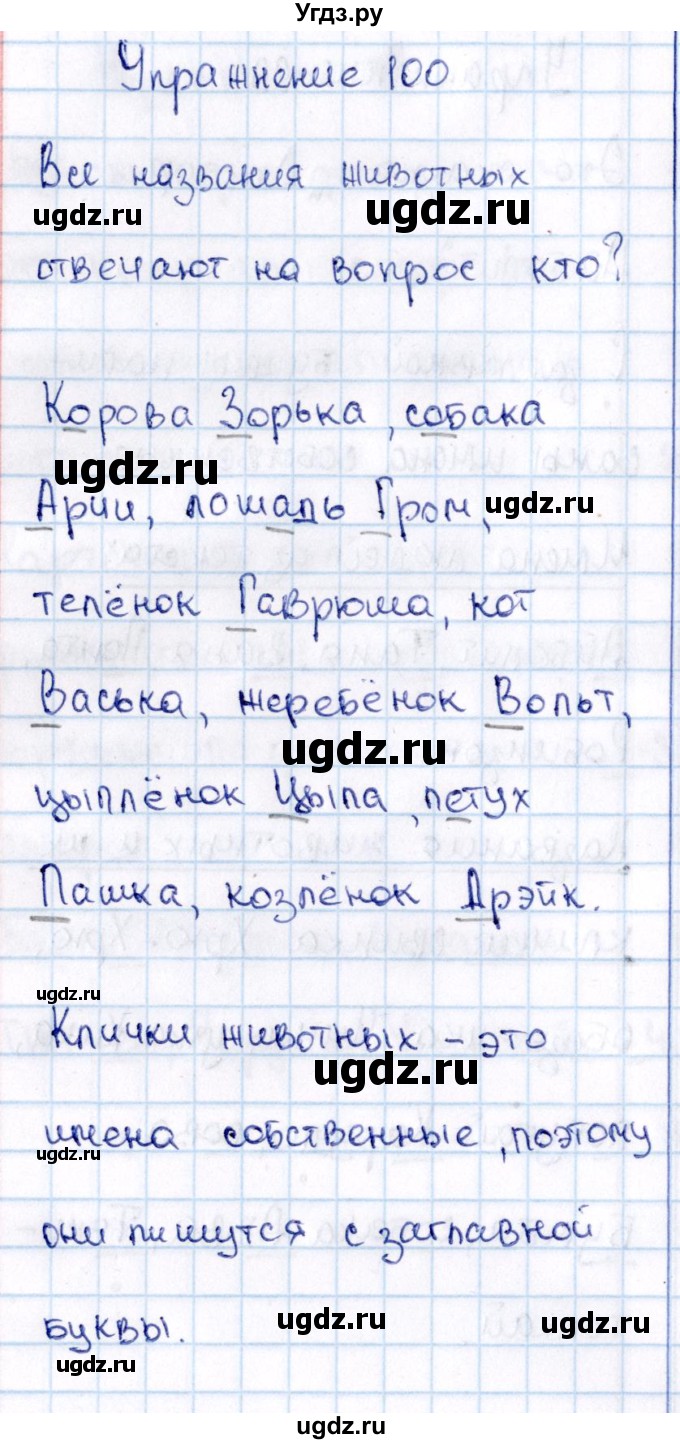 Угдз.ру
Упражнение 100
Все названия животных
ugdz.ru ugdz.ru
отвечают на вопрос кто?
Корова Зорька, собака
ugdz.ru
Арчи, лошадь Гром, ugdz.ru
телёнок Гаврюша, кот
Васька, жеребёнок Вольт,
ugdz.ru
цыплёнок Цыпа, петух
Пашка, козлёнок Дрэйк.
ugdz.ru
Клички животных – это
ugdz.ru
имена собственные, поэтому
ugdz.ru
они пишутся с заглавной
буквы. ugdz.ru ugdz.ru
ugdz.ru
ugdz.ru